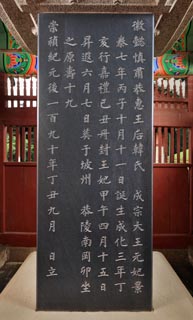 徽懿愼肅恭惠王后韓氏 成宗大王元妃景
泰七年丙子十月十一日誕生成化三年丁
亥行嘉禮己丑冊封王妃甲午四月十五日
昇遐六月七日葬于坡州 恭陵南岡卯坐
之原壽十九
崇禎紀元後一百九十年丁丑九月 日立